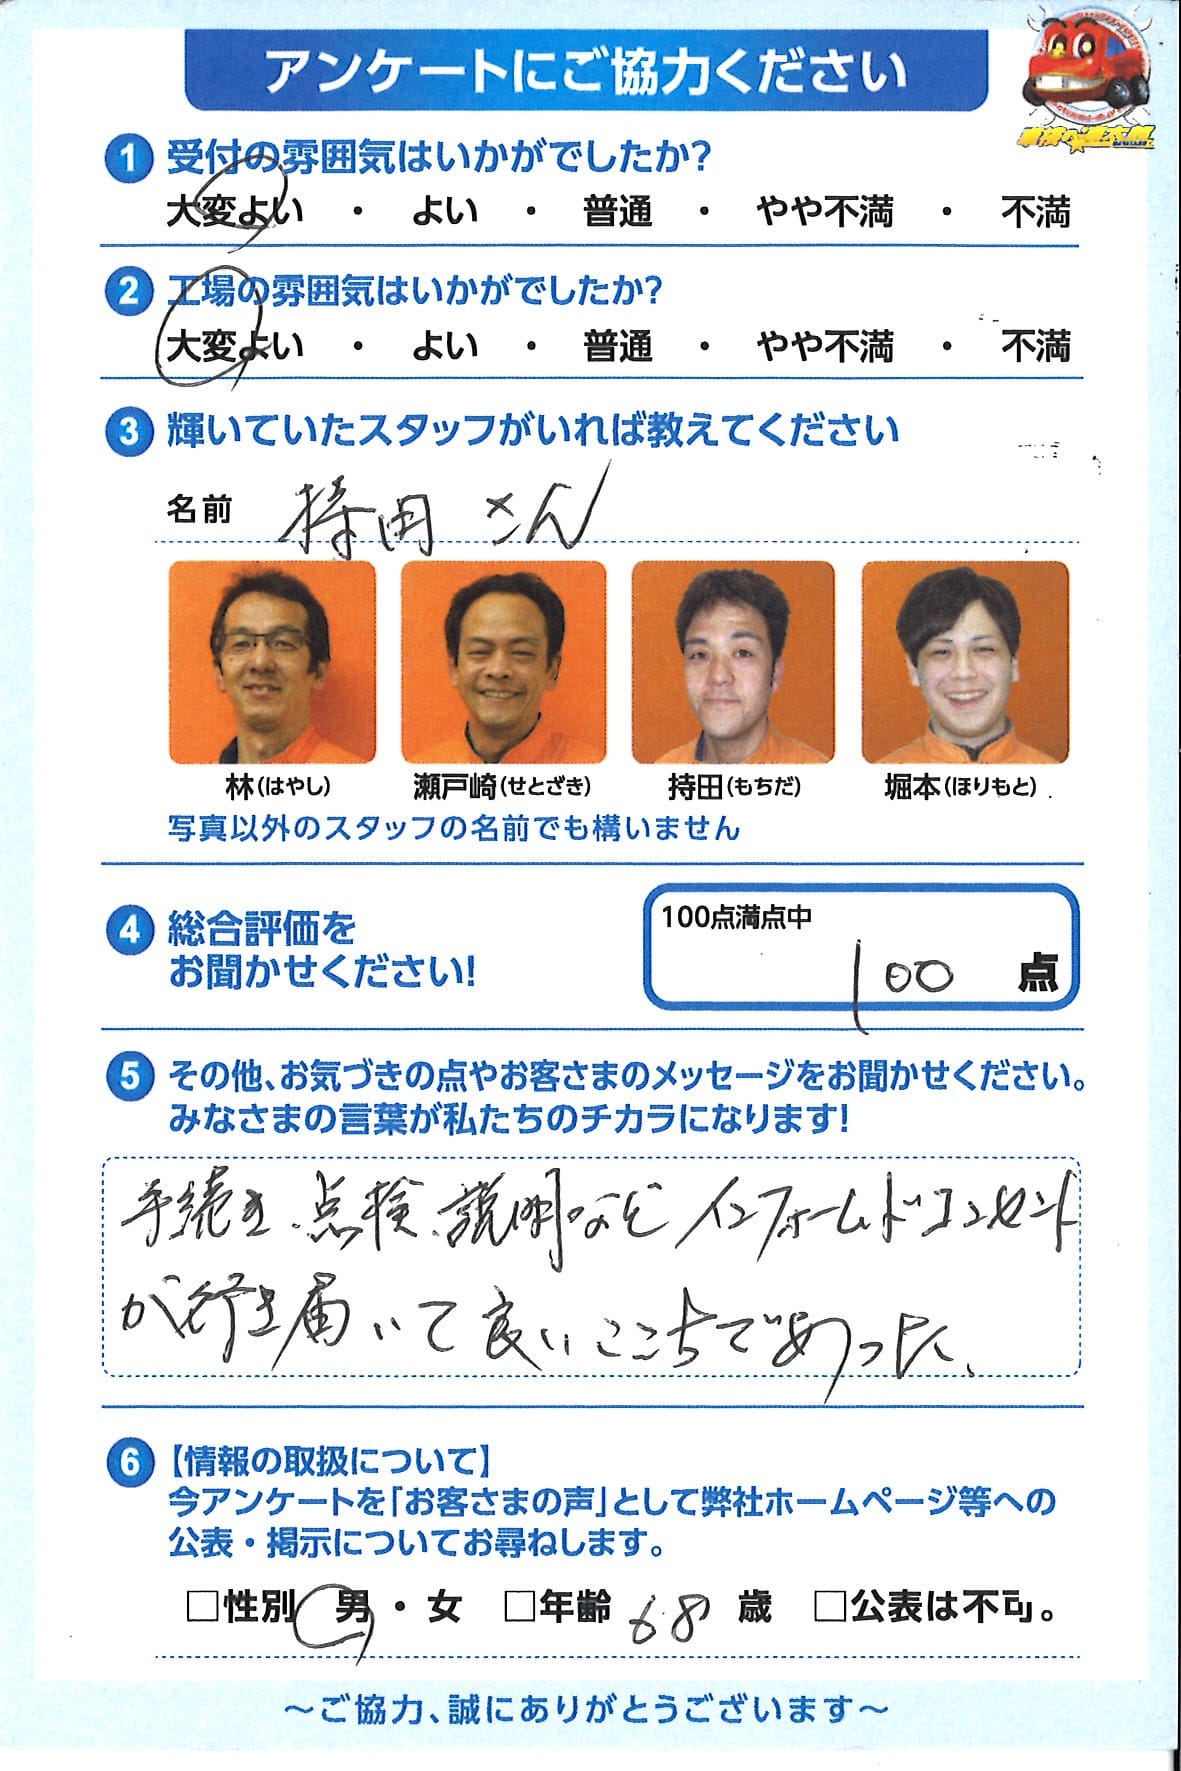 アンケートにご協力ください
車検の速太郎
1 受付の雰囲気はいかがでしたか?
大変よい ・ よい ・ 普通 ・ やや不満 ・ 不満
2 工場の雰囲気はいかがでしたか?
大変よい ・ よい ・ 普通 ・ やや不満 ・ 不満
3 輝いていたスタッフがいれば教えてください
名前 持田 さん
林(はやし) 瀬戸崎(せとざき) 持田(もちだ) 堀本(ほりもと)
写真以外のスタッフの名前でも構いません
4 総合評価を
お聞かせください!
100点満点中
100 点
5 その他、お気づきの点やお客さまのメッセージをお聞かせください。
みなさまの言葉が私たちのチカラになります!
手続き、点検、説明など インフォームドコンセント
が行き届いて良いここちであった。
6 【情報の取扱について】
今アンケートを「お客さまの声」として弊社ホームページ等への
公表・掲示についてお尋ねします。
□性別 男・女 □年齢 68 歳 □公表は不可。
~ご協力、誠にありがとうございます~